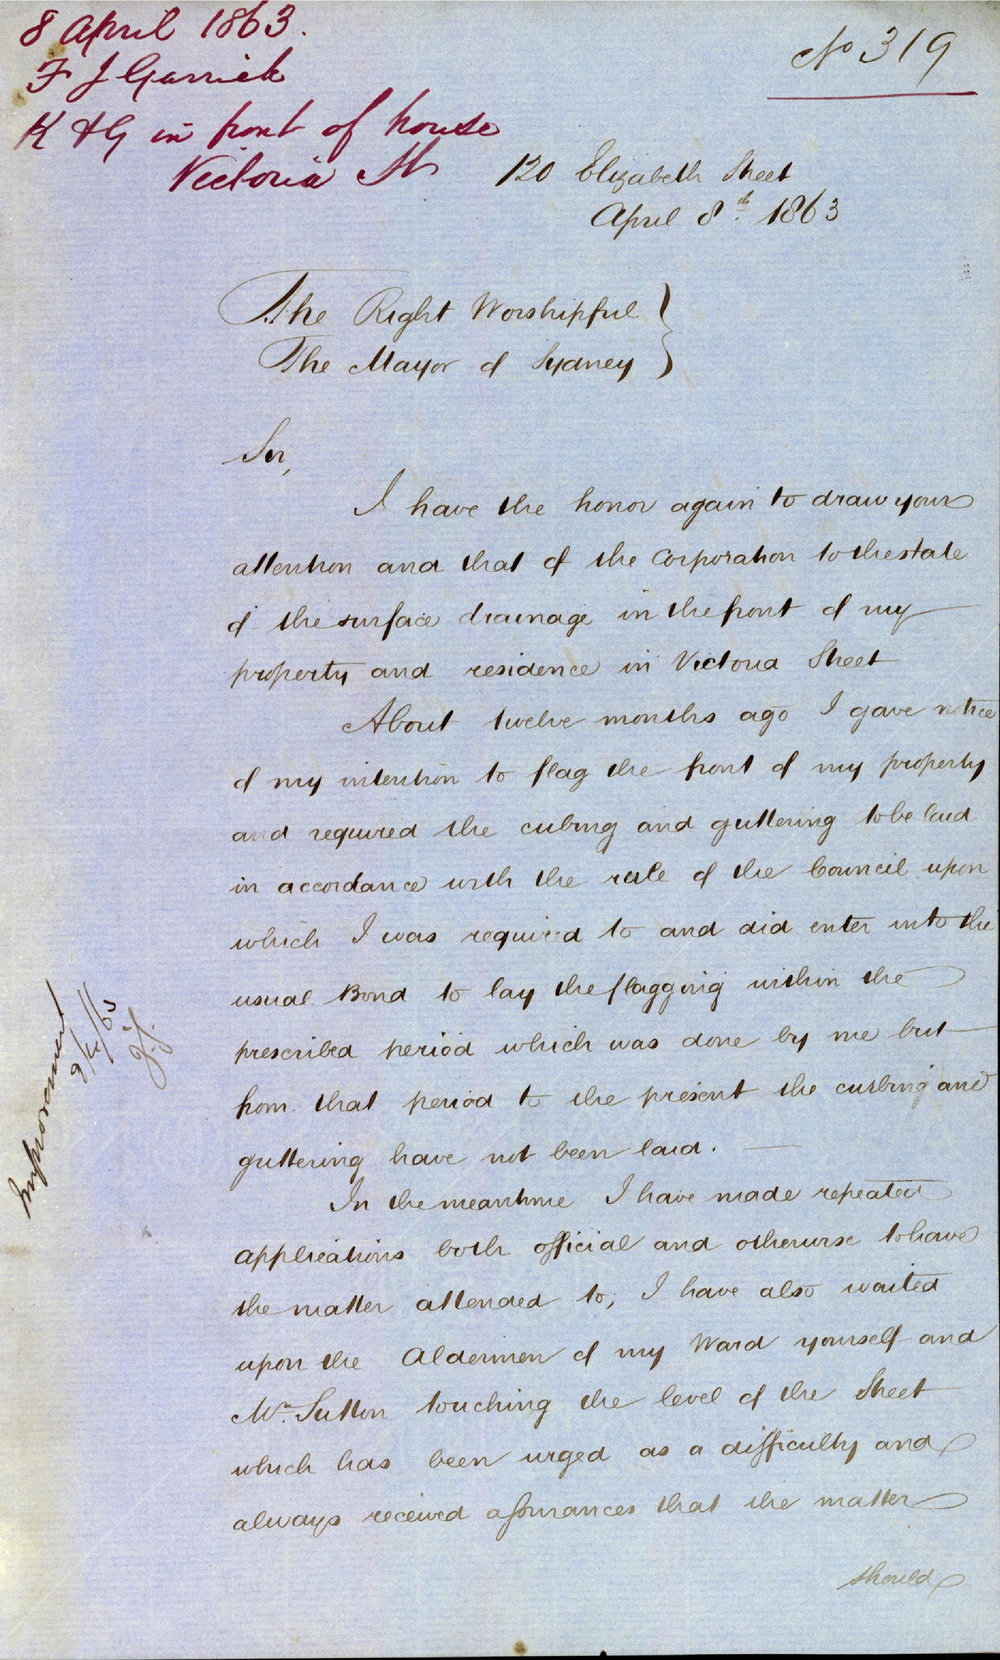 8 April 1863.
F J Garrick
K & G in front of house
Victoria St
No 319
120 Elizabeth Street
April 8th. 1863
The Right Worshipful
The Mayor of Sydney
Sir,
I have the honor again to draw your
attention and that of the Corporation to the state
of the surface drainage in the front of my
property and residence in Victoria Street
About twelve months ago I gave notice
of my intention to flag the front of my property
and required the curbing and guttering to be laid
in accordance with the rule of the Council upon
which I was required to and did enter into the
usual Bond to lay the flagging within the
prescribed period which was done by me but
from that period to the present the curbing and
guttering have not been laid. —
In the meantime I have made repeated
applications both official and otherwise to have
the matter attended to; I have also waited
upon the Aldermen of my Ward yourself and
Mr. Sutton touching the level of the Street
which has been urged as a difficulty and
always received assurances that the matter
should
Improvement
9/4/63